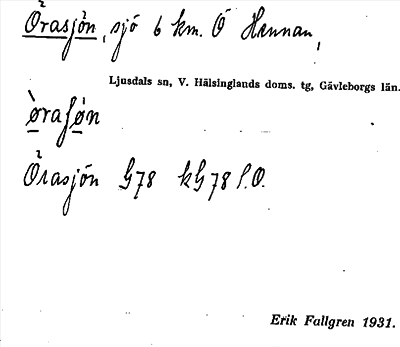 Örasjön, sjö 6 km. Ö Hennan,
Ljusdals sn, V. Hälsinglands doms. tg, Gävleborgs län.
Örasjön G78 kG78 S.O.
Erik Fallgren 1931.